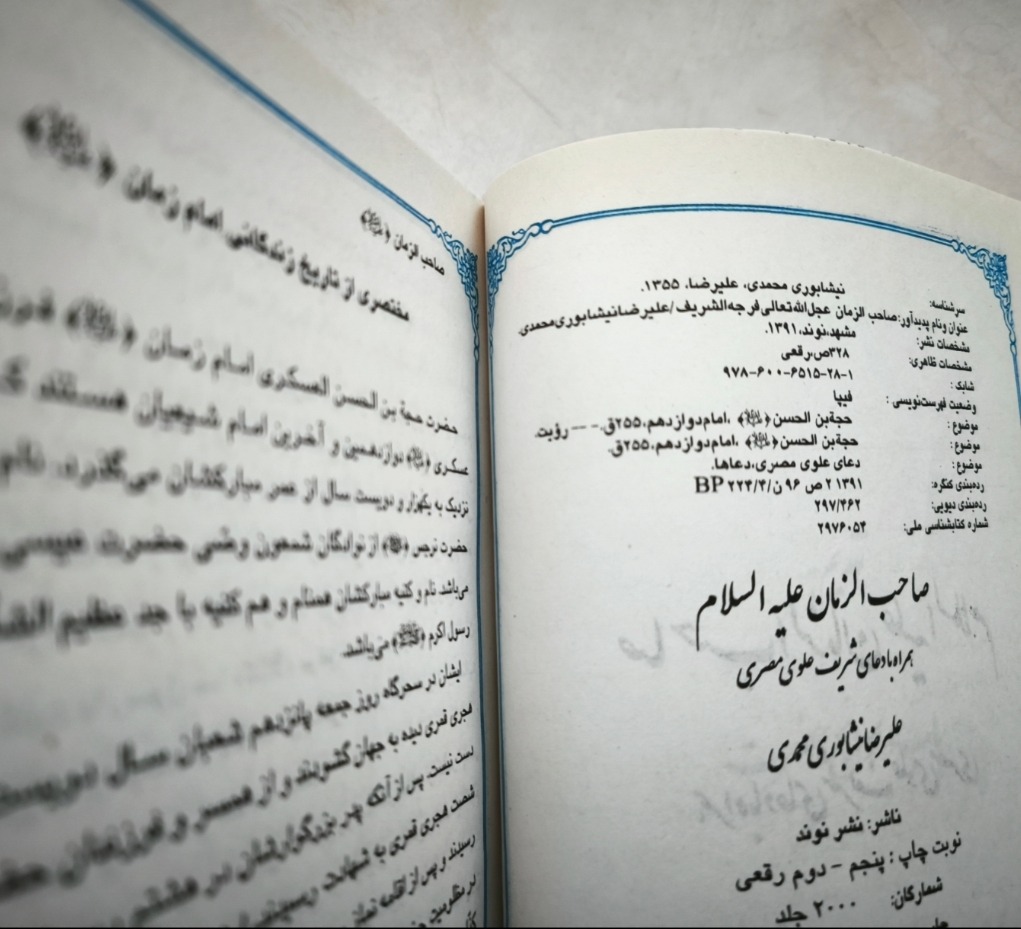 سرشناسه: نیشابوری محمدی، علیرضا، ۱۳۵۵.
عنوان ونام پدیدآور: صاحب الزمان عجل‌الله‌تعالی‌فرجه‌الشریف/علیرضانیشابوری‌محمدی.
مشخصات نشر: مشهد،نوند،۱۳۹۱.
مشخصات ظاهری: ۳۲۸ص،رقعی
شابک: ۹۷۸-۶۰۰-۶۵۱۵-۲۸-۱
وضعیت فهرست‌نویسی: فیپا
موضوع: حجةبن الحسن﴿﴾ ،امام‌دوازدهم،۲۵۵ق.- -- رؤیت.
موضوع: حجةبن الحسن﴿﴾ ،امام‌دوازدهم،۲۵۵ق.
موضوع: دعای علوی مصری،دعاها.
رده‌بندی کنگره: ۱۳۹۱ ۲ ص ۹۶ ن/۴/۲۲۴ BP
رده‌بندی دیویی: ۲۹۷/۴۶۲
شماره کتابشناسی ملی: ۲۹۷۶۰۵۴
صاحب الزمان علیه السلام
همراه بادعای شریف علوی مصری
علیرضانیشابوری محمدی
ناشر: نشر نوند
نوبت چاپ: پنجم - دوم رقعی
شمارگان: ۲۰۰۰ جلد
صاحب الزمان ﴿﴾
مختصری از تاریخ زندگانی امام زمان ﴿﴾
حضرت حجة بن الحسن العسکری امام زمان ﴿﴾
عسکری ﴿﴾ دوازدهمین و آخرین امام شیعیان هستند
نزدیک به یکهزار و دویست سال از عمر مبارکشان می‌گذرد.
حضرت نرجس ﴿﴾ از نوادگان شمعون وصی حضرت عیسی
می‌باشد. نام و کنیه مبارکشان همنام و هم کنیه با جد عظیم
رسول اکرم ﴿﴾ می‌باشد.
ایشان در سحرگاه روز جمعه پانزدهم شعبان سال
هجری قمری دیده به جهان گشودند و از همسر و فرزندان
دست نیست. پس از آنکه پدر بزرگوارشان در هشتم
شصت هجری قمری به شهادت رسیدند
رسیدند و پس از اقامه نماز